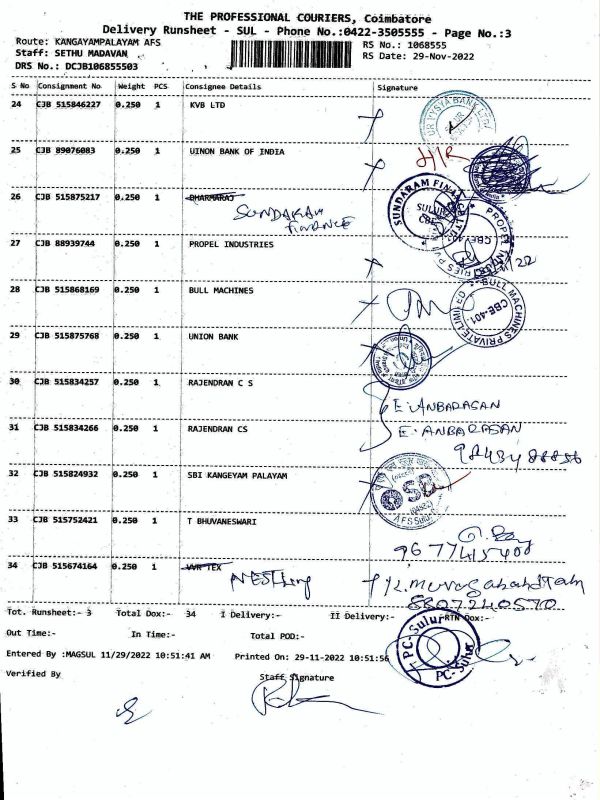 THE PROFESSIONAL COURIERS, Coimbatore
Delivery Runsheet - SUL - Phone No.:0422-3505555 - Page No.:3
Route: KANGAYAMPALAYAM AFS
RS No.: 1068555
Staff: SETHU MADAVAN
RS Date: 29-Nov-2022
DRS No.: DCJB106855503
S No Consignment No Weight PCS Consignee Details Signature
24 CJB 515846227 0.250 1 KVB LTD
VYSYA BANK LTD
25 CJB 89076083 0.250 1 UINON BANK OF INDIA
H/R
26 CJB 515875217 0.250 1 DHARMARAJ
SUNDARAM FINANCE
SUNDARAM FINA
SULUR
CBE
27 CJB 88939744 0.250 1 PROPEL INDUSTRIES
PROPEL INDUSTRIES PV
28 CJB 515868169 0.250 1 BULL MACHINES
BULL MACHINES PRIVATE LIMITED
CBE-401
29 CJB 515875768 0.250 1 UNION BANK
30 CJB 515834257 0.250 1 RAJENDRAN C S
E. ANBARASAN
31 CJB 515834266 0.250 1 RAJENDRAN CS
E. ANBARASAN
32 CJB 515824932 0.250 1 SBI KANGEYAM PALAYAM
AFS Sulur
33 CJB 515752421 0.250 1 T BHUVANESWARI
9677415400
34 CJB 515674164 0.250 1 VVR TEX
8807240570
Tot. Runsheet:- 3 Total Dox:- 34 I Delivery:- II Delivery:- RTN Dox:-
Out Time:- In Time:- Total POD:-
PC-Sulur
PC-Sulur
Entered By :MAGSUL 11/29/2022 10:51:41 AM Printed On: 29-11-2022 10:51:56
Verified By Staff Signature